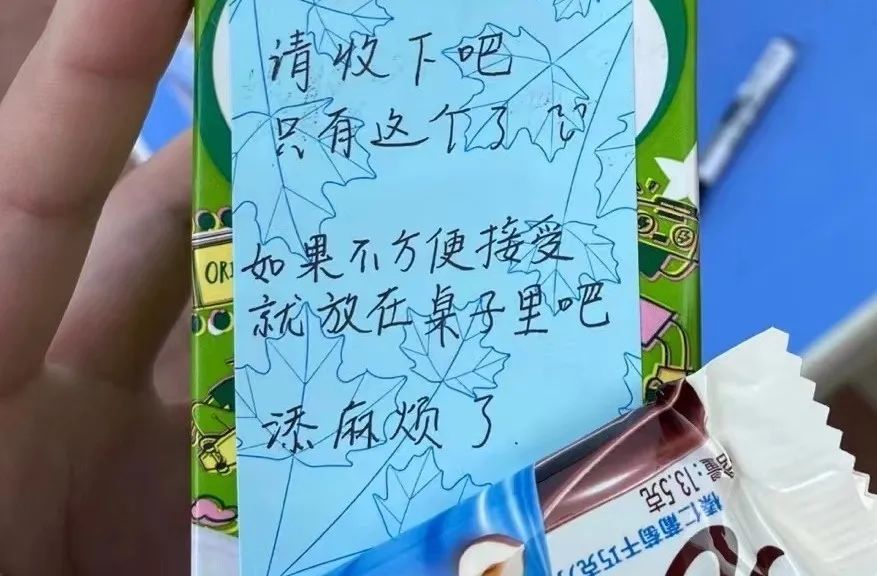 请收下吧
只有这个了
如果不方便接受
就放在桌子里吧
添麻烦了.
ORI
量:13.5克
榛仁葡萄干巧克力